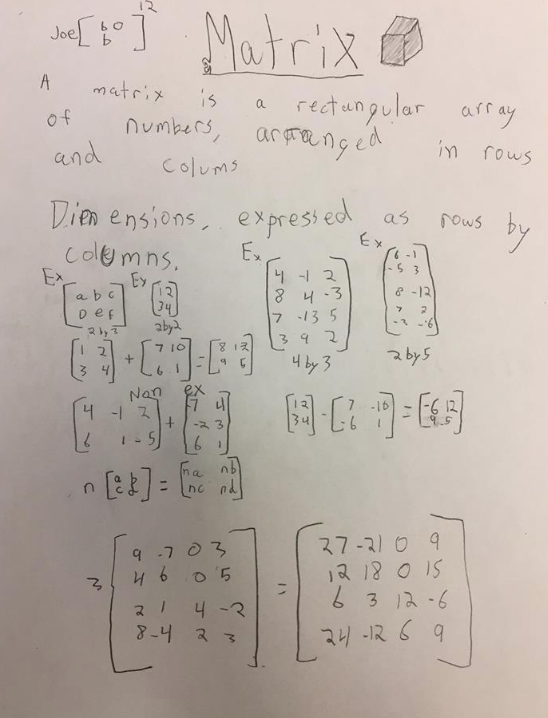 Joe [ b o
b ] 12
Matrix
A matrix is a rectangular array
of numbers, arranged in rows
and Colums
Dimensions, expressed as rows by
columns.
Ex [ a b c
D e f ]
2 by 3
Ex [ 1 2
3 4 ]
2 by 2
Ex [ 4 -1 2
8 4 -3
7 -13 5
3 9 2 ]
4 by 3
Ex [ 6 -1
-5 3
8 -12
7 2
-6 ]
2 by 5
[ 1 2
3 4 ] + [ 7 10
6 1 ] = [ 8 12
9 5 ]
Non ex
[ 4 -1 2
6 1 -5 ] + [ -7 4
-2 3
6 1 ]
[ 1 2
3 4 ] - [ 7 -10
-6 1 ] = [ -6 12
9 5 ]
n [ a b
c d ] = [ na nb
nc nd ]
3 [ 9 -7 0 3
4 6 0 5
2 1 4 -2
8 -4 2 3 ] = [ 27 -21 0 9
12 18 0 15
6 3 12 -6
24 -12 6 9 ]